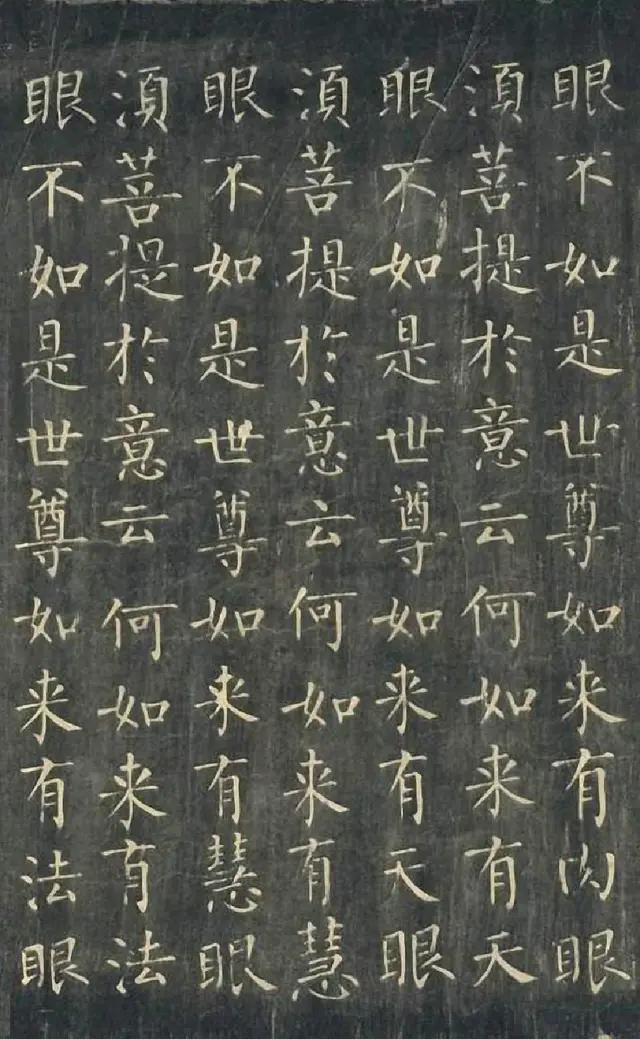 眼不如是世尊如来有肉眼
須菩提於意云何如来有天
眼不如是世尊如来有天眼
須菩提於意云何如来有慧
眼不如是世尊如来有慧眼
須菩提於意云何如来有法
眼不如是世尊如来有法眼